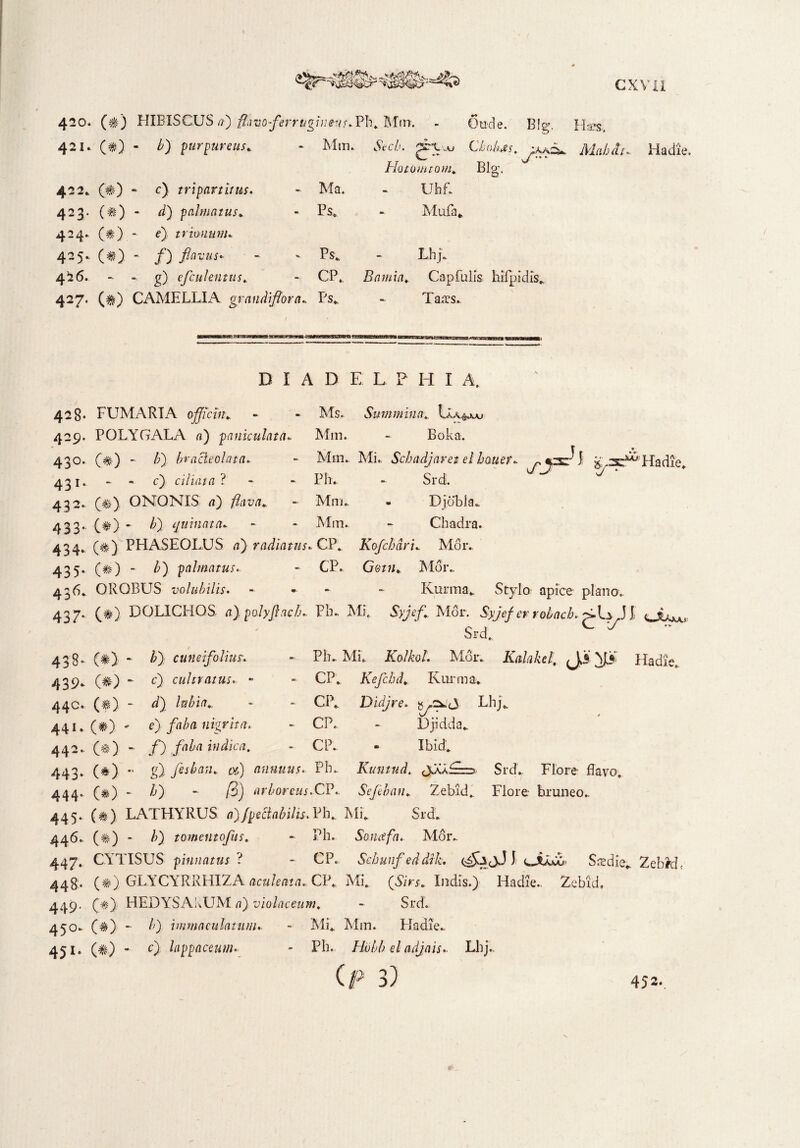 CXVII
420. (※) HIBISCUS a) flavo-ferrugineus. Ph. Mm. - Oude. Blg. Hæs.
421. (※) - b) purpureus. - Mm. Sech. Chobæs. Mahdt. Hadie.
Hotomtom. Blg.
422. (※) - c) tripartitus. - Ma. - Uhf.
423. (※) - d) palmatus. - Ps. - Mufa.
424. (※) - e) trionum.
425. (※) - f) flavus. - - Ps. - Lhj.
426. - - g) efculentus. - CP. Bamia. Capfulis hifpidis.
427. (※) CAMELLIA grandiflora. Ps. - Taæs.
DIADELPHIA.
428. FUMARIA officin. - - Ms. Summina.
429. POLYGALA a) paniculata. Mm. - Boka.
430. (※) - b) bracteolata. - Mm. Mi. Schadjaret el houer. Hadîe.
431. - - c) ciliata ? - - Ph. - Srd.
432. (※) ONONIS a) flava. - Mm. - Djöbla.
433. (※) - b) quinata. - - Mm. - Chadra.
434. (※) PHASEOLUS a) radiatus. CP. Kofchâri. Môr.
435. (※) - b) palmatus. - CP. Getn. Môr.
436. OROBUS volubilis. - - - - Kurma. Stylo apice plano.
437. (※) DOLICHOS a) polyftach. Ph. Mi. Syjef. Môr. Syjef er robach.
Srd.
438. (※) - b) cuneifolius. - Ph. Mi. Kolkol. Môr. Kalakel. Hadîe.
439. (※) - c) cultratus. - - CP. Kefchd. Kurma.
440. (※) - d) lubia. - - CP. Didjre. Lhj.
441. (※) - e) faba nigrita. - CP. - Djidda.
442. (※) - f) faba indica. - CP. - Ibid.
443. (※) - g) fesban. α) annuus. Ph. Kuntud. Srd. Flore flavo.
444. (※) - h) - β) arboreus. CP. Sefeban. Zebîd. Flore bruneo.
445. (※) LATHYRUS a) fpectabilis. Ph. Mi. Srd.
446. (※) - b) tomentofus. - Ph. Sonæfa. Môr.
447. CYTISUS pinnatus ? - CP. Schunf ed dîk. Sædie. Zebîd.
448. (※) GLYCYRRHIZA aculeata. CP. Mi. (Sirs. Indis.) Hadîe. Zebîd.
449. (※) HEDYSARUM a) violaceum. - Srd.
450. (※) - b) immaculatum. - Mi. Mm. Hadîe.
451. (※) - c) lappaceum. - Ph. Hobb el adjais. Lhj.
(p 3) 452.